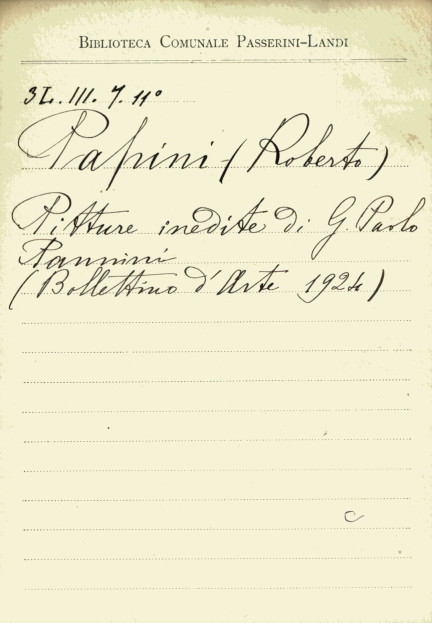 BIBLIOTECA COMUNALE PASSERINI-LANDI
3L. III. 7. 11º
Papini (Roberto)
Pitture inedite di G. Paolo
Pannini
(Bollettino d'Arte 1924)